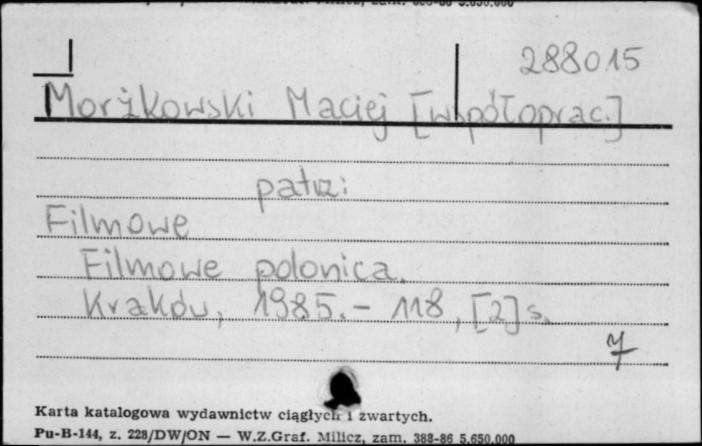 288015
Morżkowski Maciej [współoprac.]
patrz:
Filmowe
Filmowe polonica.
Kraków, 1985.- 118, [2] s.
7
Karta katalogowa wydawnictw ciągłych i zwartych.
Pu-B-144, z. 228/DW/ON — W.Z.Graf. Milicz, zam. 388-86 5.650.000